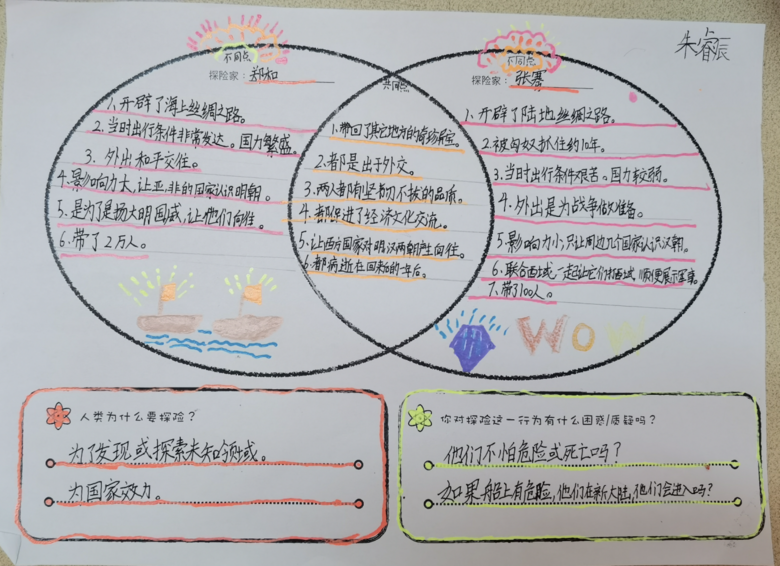 朱睿辰
不同点
探险家:郑和
1.开辟了海上丝绸之路。
2.当时出行条件非常发达。国力繁盛。
3.外出和平交往。
4.影响力大,让亚、非的国家认识明朝。
5.是为了是扬大明国威,让他们向往。
6.带了2万人。
共同点
1.带回了其它地方的奇珍异宝。
2.都是出于外交。
3.两人都有坚韧不拔的品质。
4.都促进了经济文化交流。
5.让西方国家对明汉两朝产生向往。
6.都病逝在回来后的一年后。
不同点
探险家:张骞
1.开辟了陆地丝绸之路。
2.被匈奴抓住约10年。
3.当时出行条件艰苦。国力较弱。
4.外出是为战争做准备。
5.影响力小,只让周边几个国家认识汉朝。
6.联合西域一起 顺便展示军事。
7.带了100人。
WOW
人类为什么要探险?
为了发现或探索未知领域。
为国家效力。
你对探险这一行为有什么困惑/质疑吗?
他们不怕危险或死亡吗?
如果船上有危险,他们在新大陆,他们会进入吗?